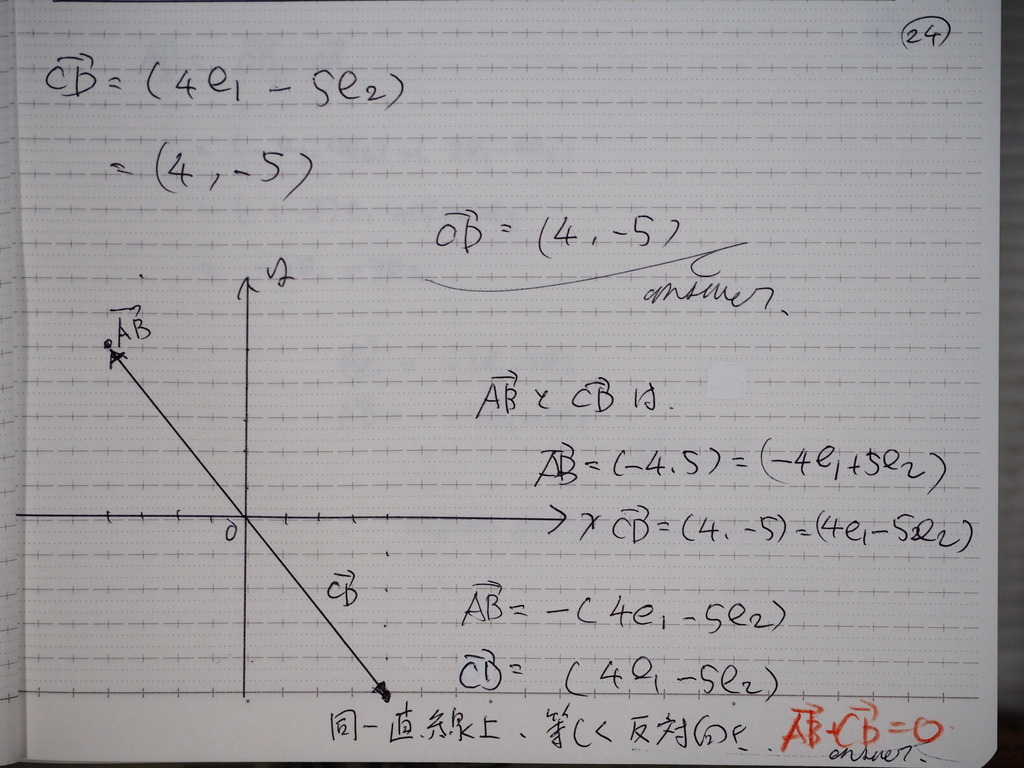 24
CD = (4e1 - 5e2)
= (4, -5)
CD = (4, -5)
answer.
y
AB
ABとCDは.
AB = (-4.5) = (-4e1+5e2)
0
x
CD = (4. -5) = (4e1-5e2)
CD
AB = -(4e1 - 5e2)
CD = (4e1 - 5e2)
同一直線上、等しく反対
AB+CD=0
answer.